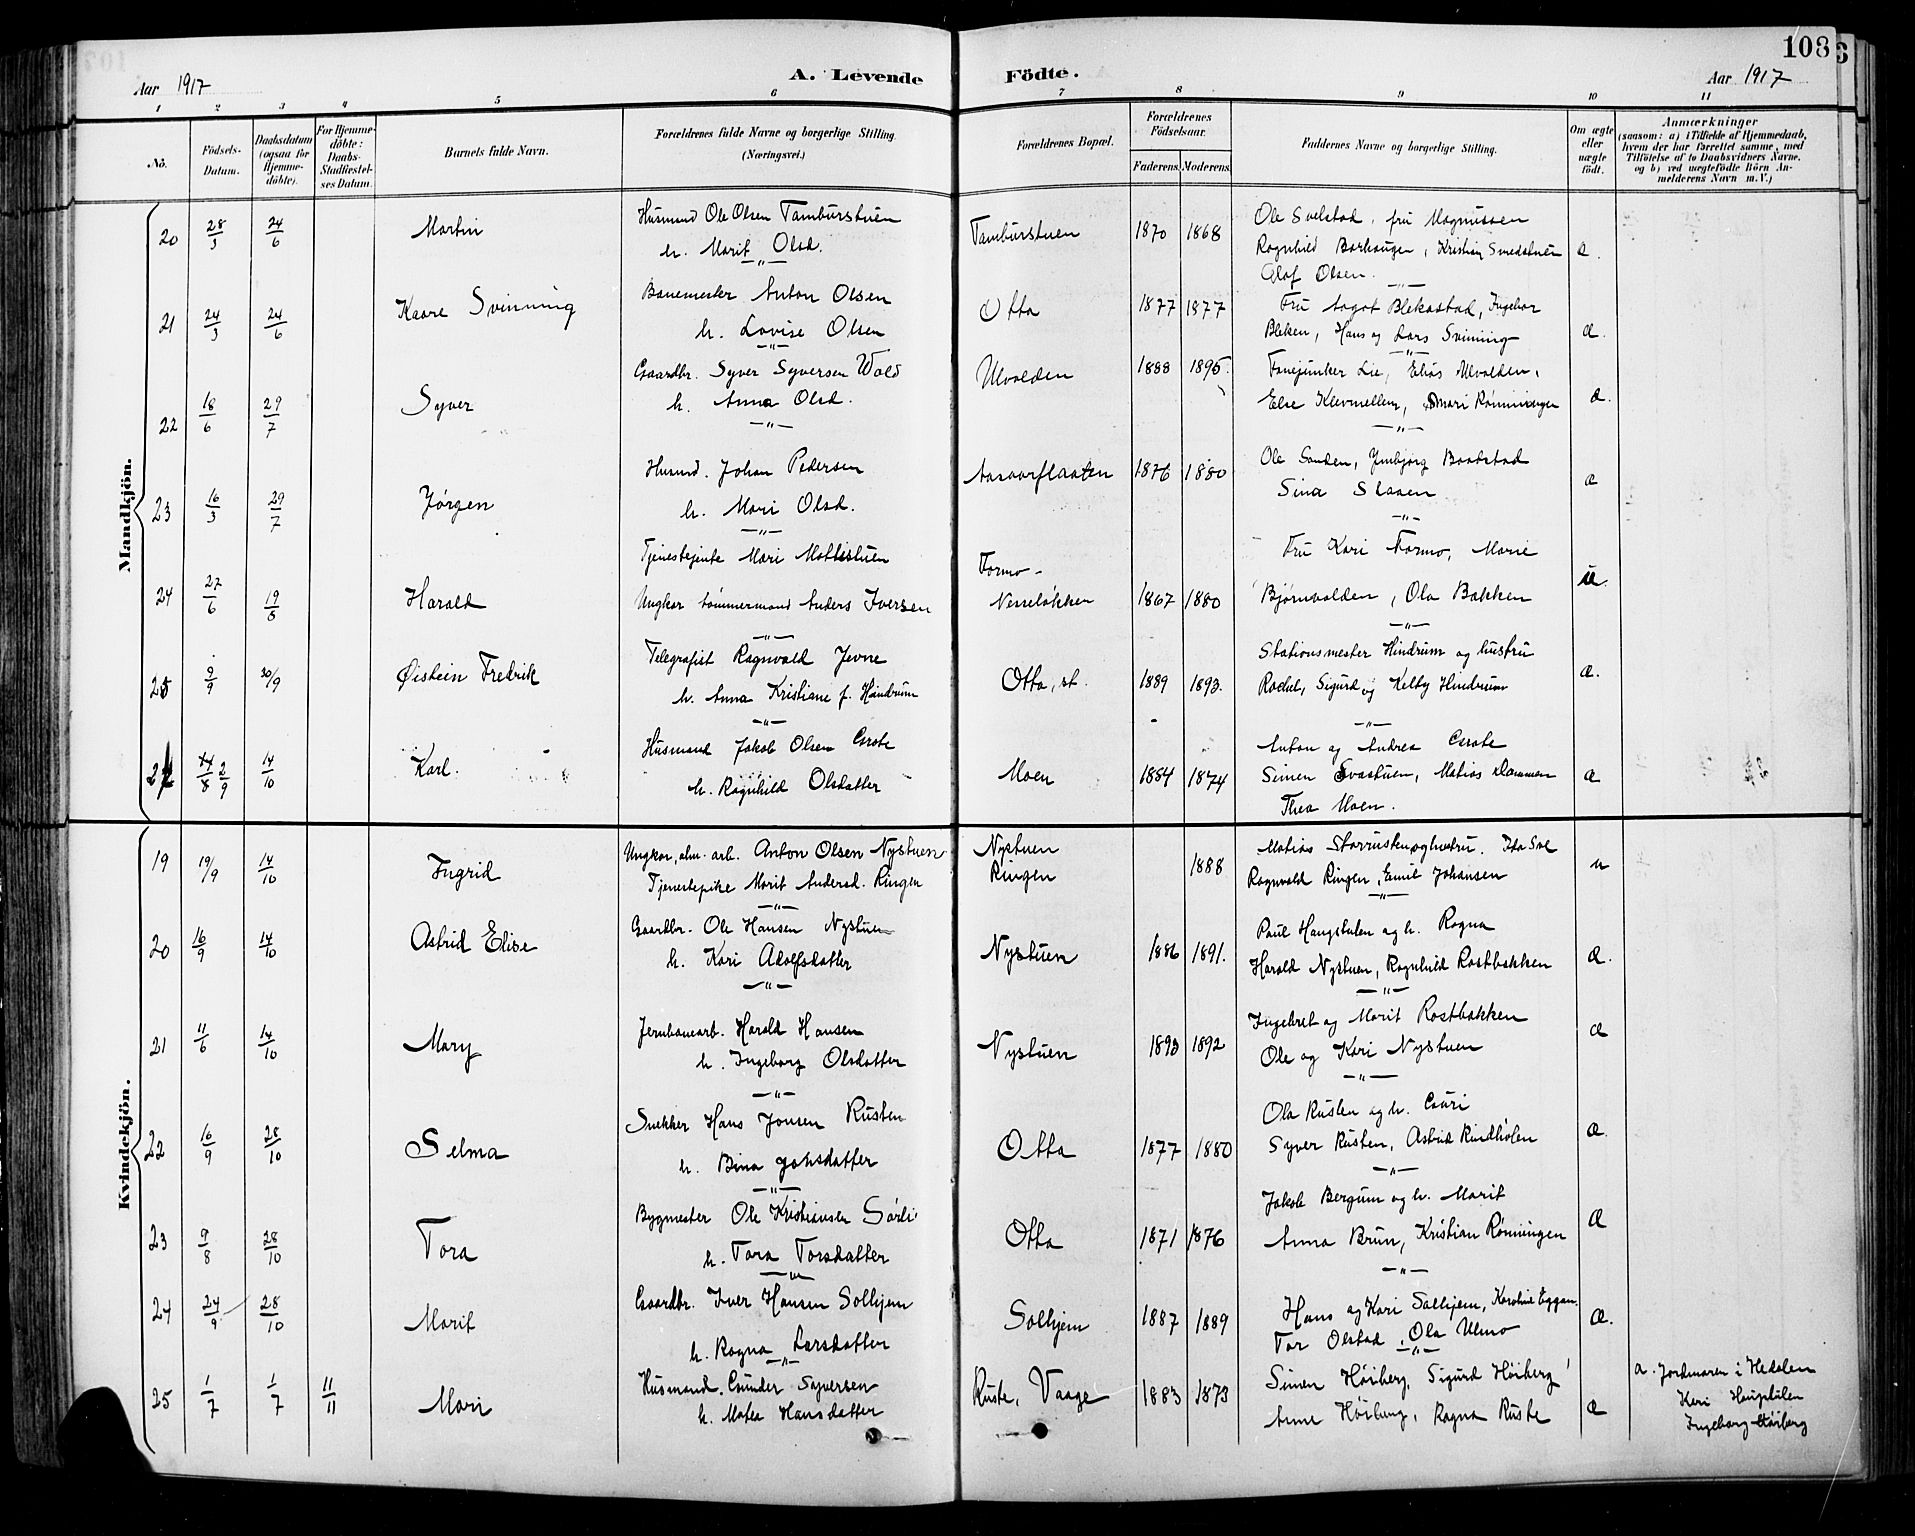 108
Aar 1917
A. Levende
Födte.
Aar 1917
1 2 3 4 5 6 7 8 9 10 11
No.
Födsels-Datum.
Daabsdatum (ogsaa for Hjemme-döbte).
For Hjemme-döbte: Daabs-Stadfæstel-ses Datum.
Barnets fulde Navn.
Forældrenes fulde Navne og borgerlige Stilling. (Næringsvei.)
Forældrenes Bopæl.
Forældrenes Födselsaar.
Faderens. Moderens.
Faddernes Navne og borgerlige Stilling.
Om ægte eller uægte födt.
Anmærkninger
(saasom: a) i Tilfælde af Hjemmedaab,
hvem der har forrettet samme, med
Tilföielse af to Daabsvidners Navne.
og b) ved uægtefödte Börn An-
melderens Navn m. V.)
Mandkjön.
20 28/3 24/6 Martin
Husmand Ole Olsen Tamburstuen
h. Marit Olsd.
Tamburstuen 1870 1868
Ole Selstad, fru Magnussen
Ragnhild Barhaugen, Kristian Smedstuen
Olaf Olsen.
æ.
21 24/3 24/6 Kaare Svinning
Banemester Anton Olsen
h. Lovise Olsen
Otta 1877 1877
Fru Aagot Blekastad, Ingebor
Bleken, Hans og Lars Svinning
æ.
22 18/6 29/7 Syver
Gaardbr. Syver Syversen Wold
h. Anna Olsd.
Ulvolden 1888 1895.
Fanejunker Lie, Eliås Ulvolden,
Else Kleivmellem, Mari Rønningen
æ.
23 16/3 29/7 Jørgen
Husmd. Johan Pedersen
h. Mari Olsd.
Aasaarflaaten 1876 1880
Ole Sanden, Ymbjørg Baatstad
Sina Slaaen
æ
24 27/6 19/8 Harald
Tjenestejente Mari Mattistuen
Ungkar tømmermand Anders Iversen
Formo-
Nesseløkken 1867 1880
Fru Kari Formo, Marie
Bjørnvolden, Ola Bakken
u.
25 9/9 30/9 Øistein Fredrik
Telegrafist Ragnvald Jevne
h. Anna Kristiane f. Hindrum
Otta, st. 1889 1893.
Stationsmester Hindrum og hustru
Rachel, Sigurd og Kelby Hindrum
æ.
27 2/9 14/10 Karl.
Husmand Jakob Olsen Grote
h. Ragnhild Olsdatter
Moen 1884 1874
Anton og Andrea Grote
Simen Svastuen, Matias Dammen
Thea Moen.
æ
Kvindekjön.
19 19/9 14/10 Ingrid
Ungkar, alm. arb. Anton Olsen Nystuen
Tjenestepike Marit Andersd. Ringen
Nystuen
Ringen 1888
Matias Storrusten og hustru. Ida Sve
Ragnvald Ringen, Emil Johansen
u
20 16/9 14/10 Astrid Elise
Gaardbr. Ole Hansen Nystuen
h. Kari Adolfsdatter
Nystuen 1886 1891.
Paul Haugstulen og h. Ragna
Harald Nystuen, Ragnhild Rostbakken
æ.
21 11/6 14/10 Mary
Jernbanearb. Harald Hansen
h. Ingeborg Olsdatter
Nystuen 1893 1892
Ingebret og Marit Rostbakken
Ole og Kari Nystuen
æ
22 16/9 28/10 Selma
Snekker Hans Jonsen Rusten
h. Bina Johsdatter
Otta 1877 1880
Ola Rusten og h. Guri
Syver Rusten, Astrid Rindhølen
æ.
23 9/8 28/10 Tora
Bygmester Ole Kristiansen Sørli
h. Tora Torsdatter
Otta 1871 1876
Jakob Bergum og h. Marit
Anna Brun, Kristian Rønningen
æ
24 24/9 28/10 Marit
Gaardbr. Iver Hansen Solhjem
h. Ragna Larsdatter
Solhjem 1887 1889
Hans og Kari Solhjem, Karoline Eggen.
Tor Olstad, Ola Ulmo
æ.
25 1/7 1/7 11/11 Mari
Husmand. Gunder Syversen
h. Matea Hansdatter
Ruste, Vaage 1883 1873
Simen Høiberg, Sigurd Høiberg
Anne Høiberg, Ragna Ruste
æ
a. Jordmoren i Hedalen
Kari Haugstulen
Ingeborg Høiberg